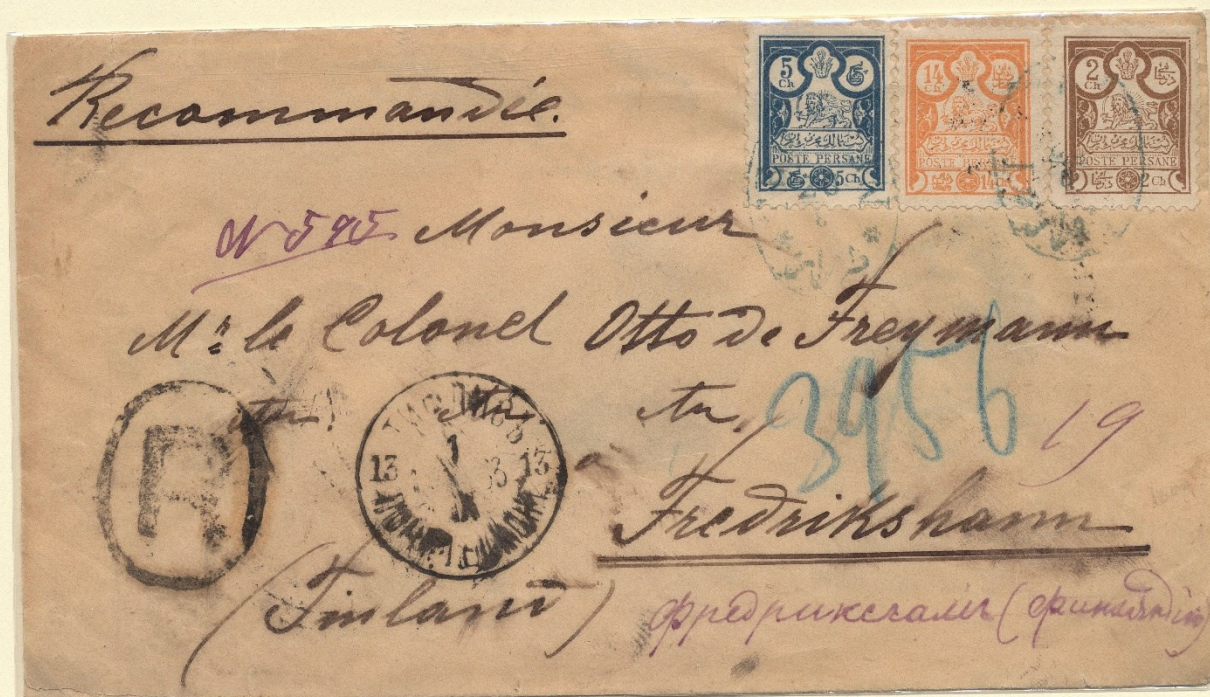 Recommandée.
5 Ch
POSTE PERSANE
5 Ch
14 Ch
POSTE PERSANE
14
2 Ch
POSTE PERSANE
2 Ch
N 595 Monsieur
Mr. le Colonel Otto de Freymann
3956
19
R
ТИФЛИСЪ
1
13 13
Fredrikshamn
(Finland) Фредриксгамъ (Финляндія)